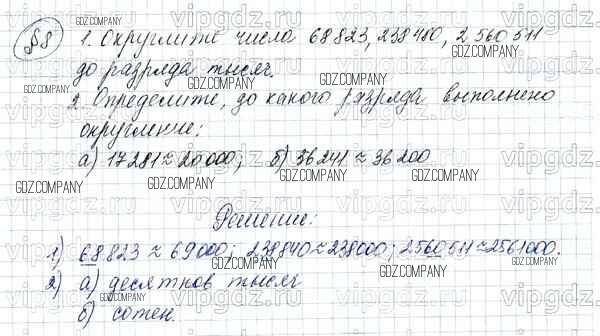 §8
1. Округлите числа 68823, 238480, 2560511
до разряда тысяч.
2. Определите, до какого разряда выполнено
округление:
а) 17281 ≈ 20000; б) 36241 ≈ 36200
Решение:
1) 68823 ≈ 69000; 238840 ≈ 238000; 2560511 ≈ 2561000.
2) а) десятков тысяч
б) сотен.
GDZ.COMPANY
vipgdz.com